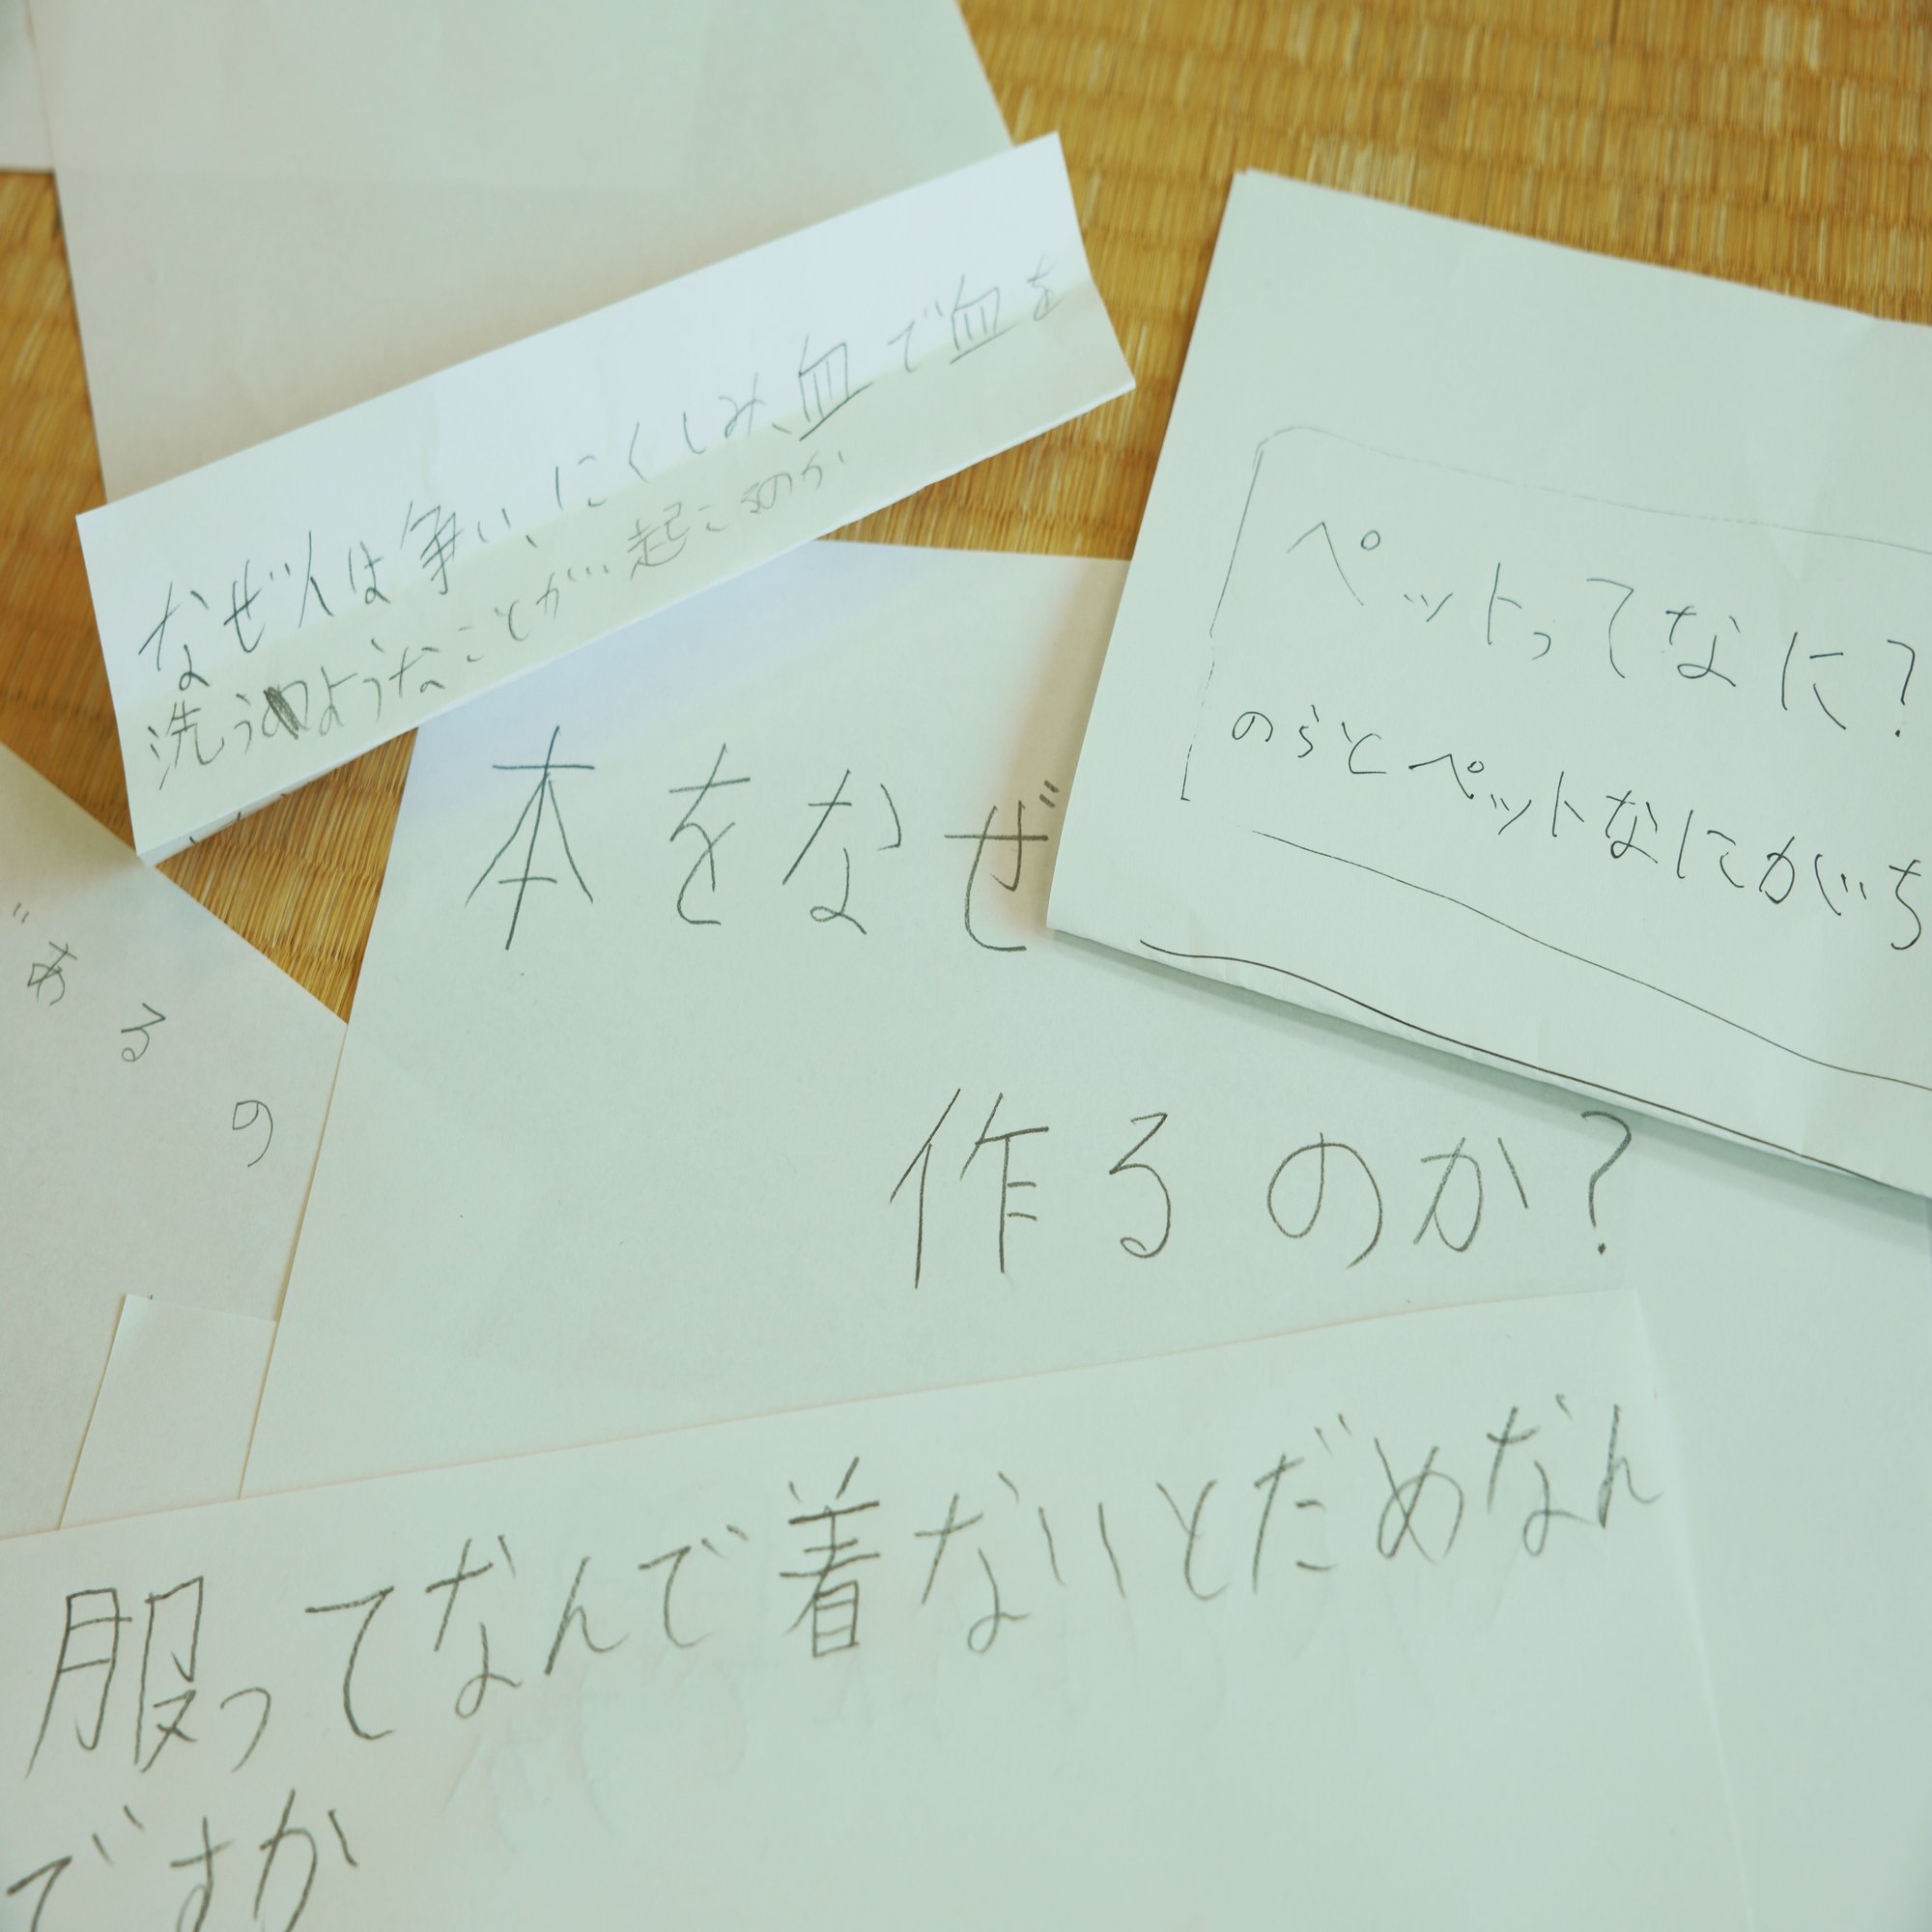 なぜ人は争い、にくしみ、血で血を
洗うようなことが起こるのか
ペットってなに?
のらとペットなにがち
本をなぜ
作るのか?
あるの
服ってなんで着ないとだめなん
ですか